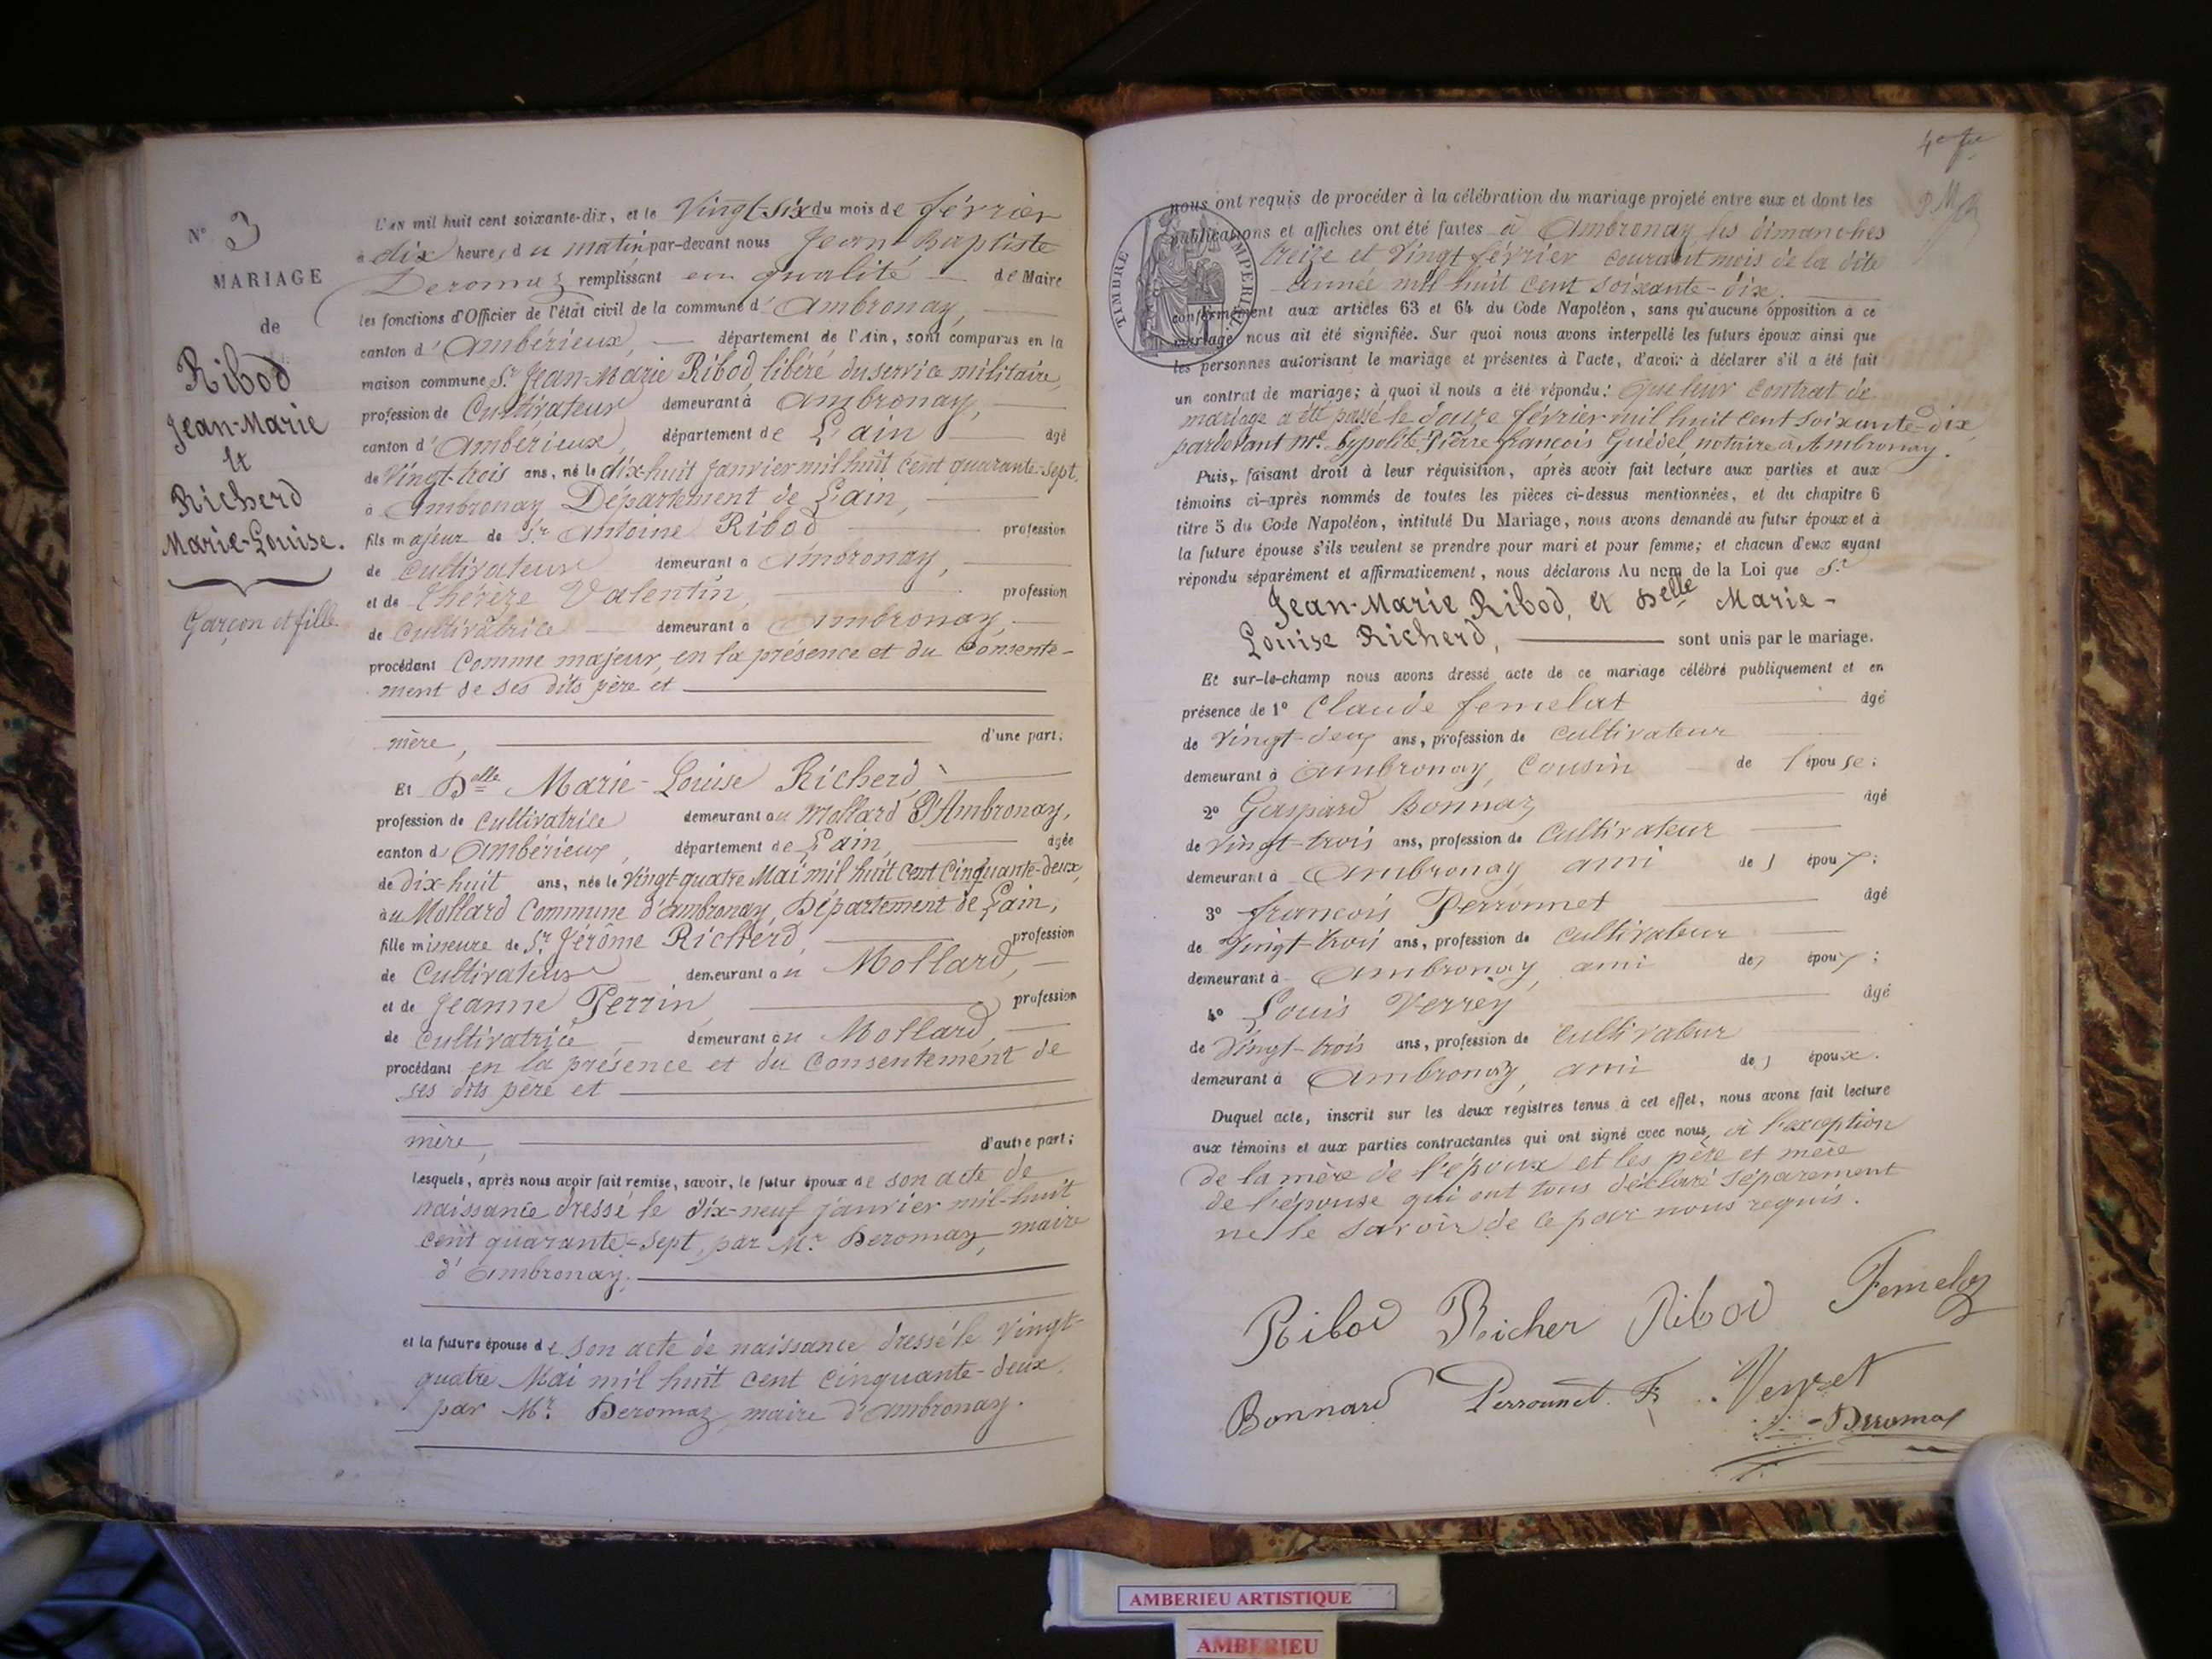 N° 3
MARIAGE
de
Ribod
Jean-Marie
et
Richerd
Marie-Louise.
Garçon et fille.
L'AN mil huit cent soixante-dix, et le Vingt-six du mois de février
à dix heures du matin par-devant nous Jean-Baptiste
Deromaz remplissant en qualité de Maire
les fonctions d'Officier de l'état civil de la commune d'Ambronay,
canton d'Ambérieux, département de l'Ain, sont comparus en la
maison commune Sr Jean-Marie Ribod, libéré du service militaire,
profession de Cultivateur demeurant à Ambronay,
canton d'Ambérieux, département de L'ain âgé
de Vingt-trois ans, né le dix-huit janvier mil huit cent quarante-sept,
à Ambronay Département de L'ain,
fils majeur de Sr Antoine Ribod profession
de cultivateur demeurant à Ambronay,
et de Thérèze Valentin, profession
de Cultivatrice demeurant à Ambronay,
procédant Comme majeur, en la présence et du Consente-
ment de ses dits père et
mère, d'une part;
Et Delle Marie-Louise Richerd,
profession de Cultivatrice demeurant au Mollard D'Ambronay,
canton d'Ambérieux, département de L'ain, âgée
de dix-huit ans, née le Vingt-quatre Mai mil huit cent Cinquante-deux,
au Mollard Commune d'ambronay, Département de L'ain,
fille mineure de Sr Jérôme Richerd, profession
de Cultivateur demeurant au Mollard,
et de Jeanne Perrin, profession
de Cultivatrice demeurant au Mollard,
procédant en la présence et du Consentement de
ses dits père et
mère, d'autre part;
Lesquels, après nous avoir fait remise, savoir, le futur époux de son acte de
naissance dressé le dix-neuf janvier mil-huit
cent quarante-sept, par Mr. Deromaz, maire
d'Ambronay.
et la future épouse de son acte de naissance dressé le Vingt-
quatre Mai mil huit cent cinquante-deux
par Mr. Deromaz, maire d'ambronay.
TIMBRE IMPERIAL
nous ont requis de procéder à la célébration du mariage projeté entre eux et dont les
publications et affiches ont été faites à Ambronay, les dimanches
treize et Vingt février courant mois de la dite
année mil huit cent soixante-dix.
conformément aux articles 63 et 64 du Code Napoléon, sans qu'aucune opposition à ce
mariage nous ait été signifiée. Sur quoi nous avons interpellé les futurs époux ainsi que
les personnes autorisant le mariage et présentes à l'acte, d'avoir à déclarer s'il a été fait
un contrat de mariage; à quoi il nous a été répondu: Que leur contrat de
mariage a été passé le douze février mil huit cent soixante-dix
par devant me. hypolite-Pierre françois Guédel, notaire à Ambronay.
Puis, faisant droit à leur réquisition, après avoir fait lecture aux parties et aux
témoins ci-après nommés de toutes les pièces ci-dessus mentionnées, et du chapitre 6
titre 5 du Code Napoléon, intitulé Du Mariage, nous avons demandé au futur époux et à
la future épouse s'ils veulent se prendre pour mari et pour femme; et chacun d'eux ayant
répondu séparément et affirmativement, nous déclarons Au nom de la Loi que Sr
Jean-Marie Ribod, et Delle Marie-
Louise Richerd, sont unis par le mariage.
Et sur-le-champ nous avons dressé acte de ce mariage célébré publiquement et en
présence de 1° Claude femelat âgé
de Vingt-deux ans, profession de cultivateur
demeurant à Ambronay, Cousin de l'épouse;
2° Gaspard Bonnaz âgé
de Vingt-trois ans, profession de Cultivateur
demeurant à Ambronay ami de l'époux;
3° françois Perronnet âgé
de Vingt-trois ans, profession de cultivateur
demeurant à Ambronay, ami de l'époux;
4° Louis Verrey âgé
de Vingt-trois ans, profession de cultivateur
demeurant à Ambronay, ami de l'époux.
Duquel acte, inscrit sur les deux registres tenus à cet effet, nous avons fait lecture
aux témoins et aux parties contractantes qui ont signé avec nous, à l'exception
de la mère de l'époux et les père et mère
de l'épouse qui ont tous déclaré séparément
ne le savoir de ce par nous requis.
Ribod Richer Ribod Femelaz
Bonnard Perrounet F. Veyret
Deromaz
AMBERIEU ARTISTIQUE
AMBERIEU